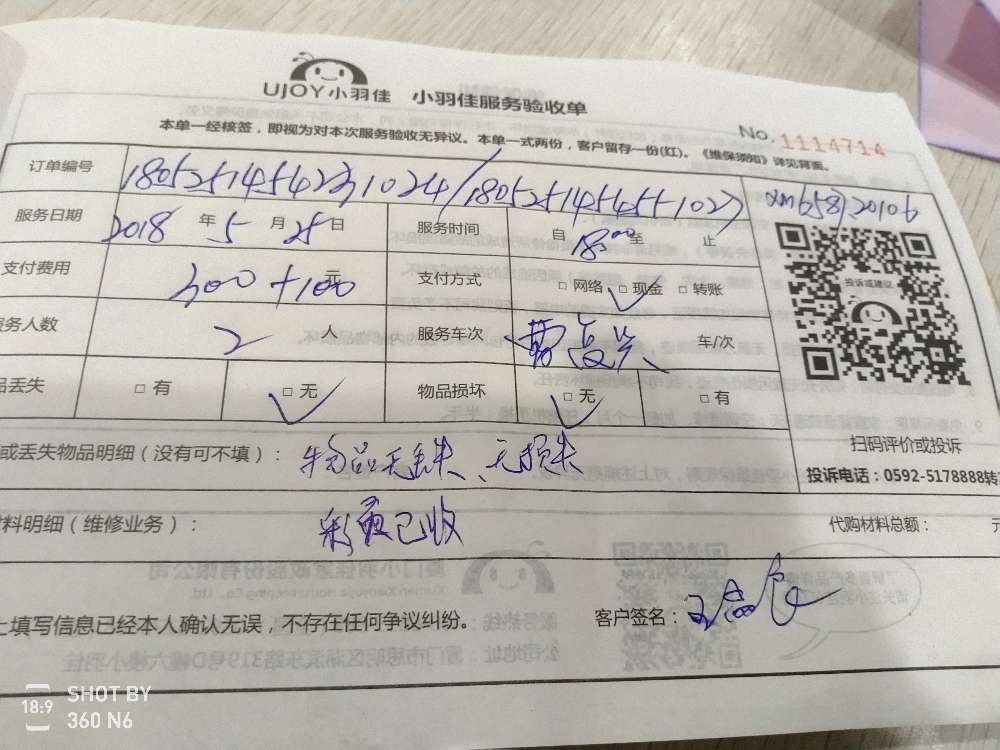 UJOY小羽佳 小羽佳服务验收单
No. 1114714
本单一经核签，即视为对本次服务验收无异议。本单一式两份，客户留存一份(红)。《维保须知》详见背面。
订单编号
服务日期 2018 年 5 月 25 日 服务时间 自 18:00 至 止
支付费用 300+100 元 支付方式 □ 网络 □ 现金 □ 转账
务人数 2 人 服务车次 车/次
品丢失 □ 有 □ 无 物品损坏 □ 无 □ 有
投诉或建议
扫码评价或投诉
投诉电话：0592-5178888转
或丢失物品明细（没有可不填）： 物品无丢失、无损失
料明细（维修业务）： 已收 代购材料总额： 元
上填写信息已经本人确认无误，不存在任何争议纠纷。 客户签名：
18:9 SHOT BY
360 N6